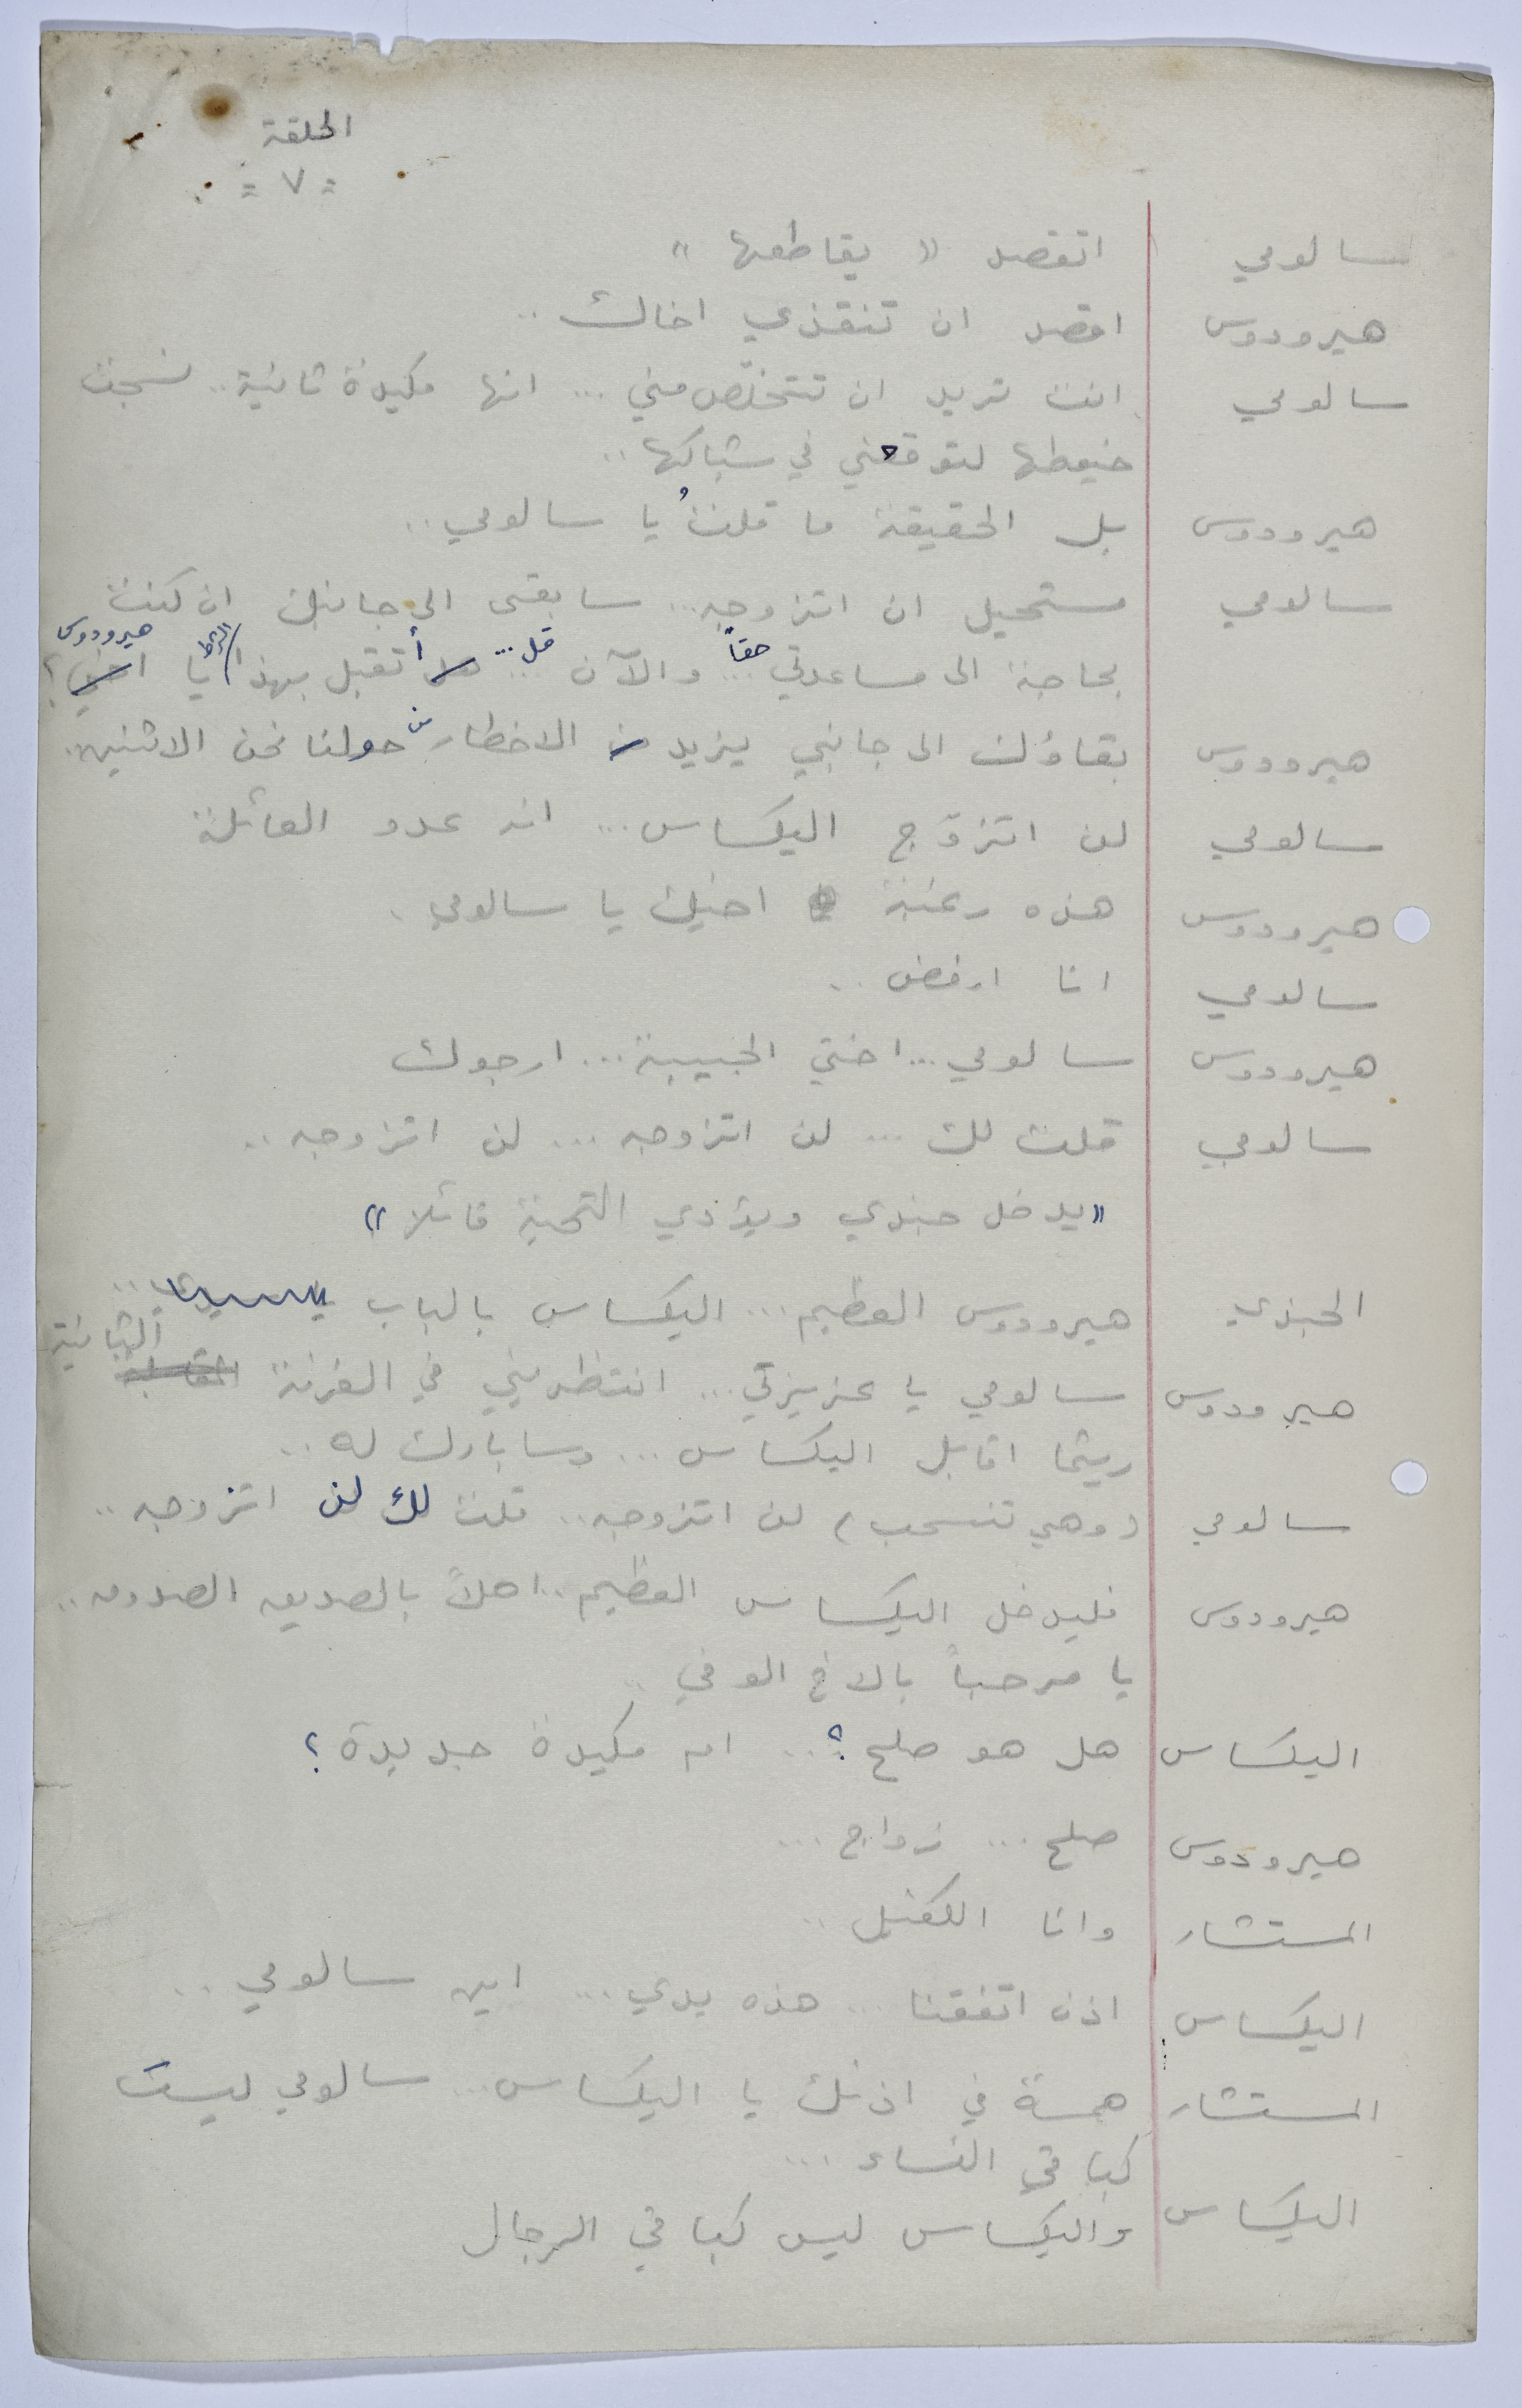 الحلقة
= ٧ =
سالومي اتقصد « يقاطعها »
هيرودوس اقصد ان تنقذي اخاك ..
سالومي انت تريد ان تتخلّص مني ... انها مكيدة ثانية .. نسجت
خيوطها لتوقعني في شباكها ..
هيرودوس بل الحقيقة ما قلتُ يا سالومي ..
سالومي مستحيل ان اتزوجه ... سابقى الى جانبك ان كنت
بحاجة الى مساعدتي حقاً ... والآن ... قل ... هل أتقبل بهذا الرأي يا اخي هيرودوس ؟
هيرودوس بقاؤك الى جانبي يزيد من الاخطار من حولنا نحن الاثنين .
سالومي لن اتزوّج اليكساس ... انه عدو العائلة
هيرودوس هذه رغبة اخيك يا سالومي .
سالومي انا ارفض ..
هيرودوس سالومي ... اختي الحبيبة ... ارجوك
سالومي قلت لك ... لن اتزوجه ... لن اتزوجه ..
« يدخل جندي ويؤدي التحية قائلا »
الجندي هيرودوس العظيم ... اليكساس بالباب ..
هيرودوس سالومي يا عزيزتي ... انتظريني في الغرفة الثانية
ريثما اقابل اليكساس ... وسابارك له ..
سالومي (وهي تنسحب) لن اتزوجه .. قلت لك لن اتزوجه ..
هيرودوس فليدخل اليكساس العظيم .. اهلاً بالصديق الصدوق ..
يا مرحباً بالاخ الوفي ..
اليكساس هل هو صلح ؟ .. ام مكيدة جديدة ؟
هيرودوس صلح ... زواج ...
المستشار وانا الكفيل ..
اليكساس اذن اتفقنا ... هذه يدي ... اين سالومي ..
المستشار همسة في اذنك يا اليكساس ... سالومي ليست
كباقي النساء ...
اليكساس واليكساس ليس كباقي الرجال